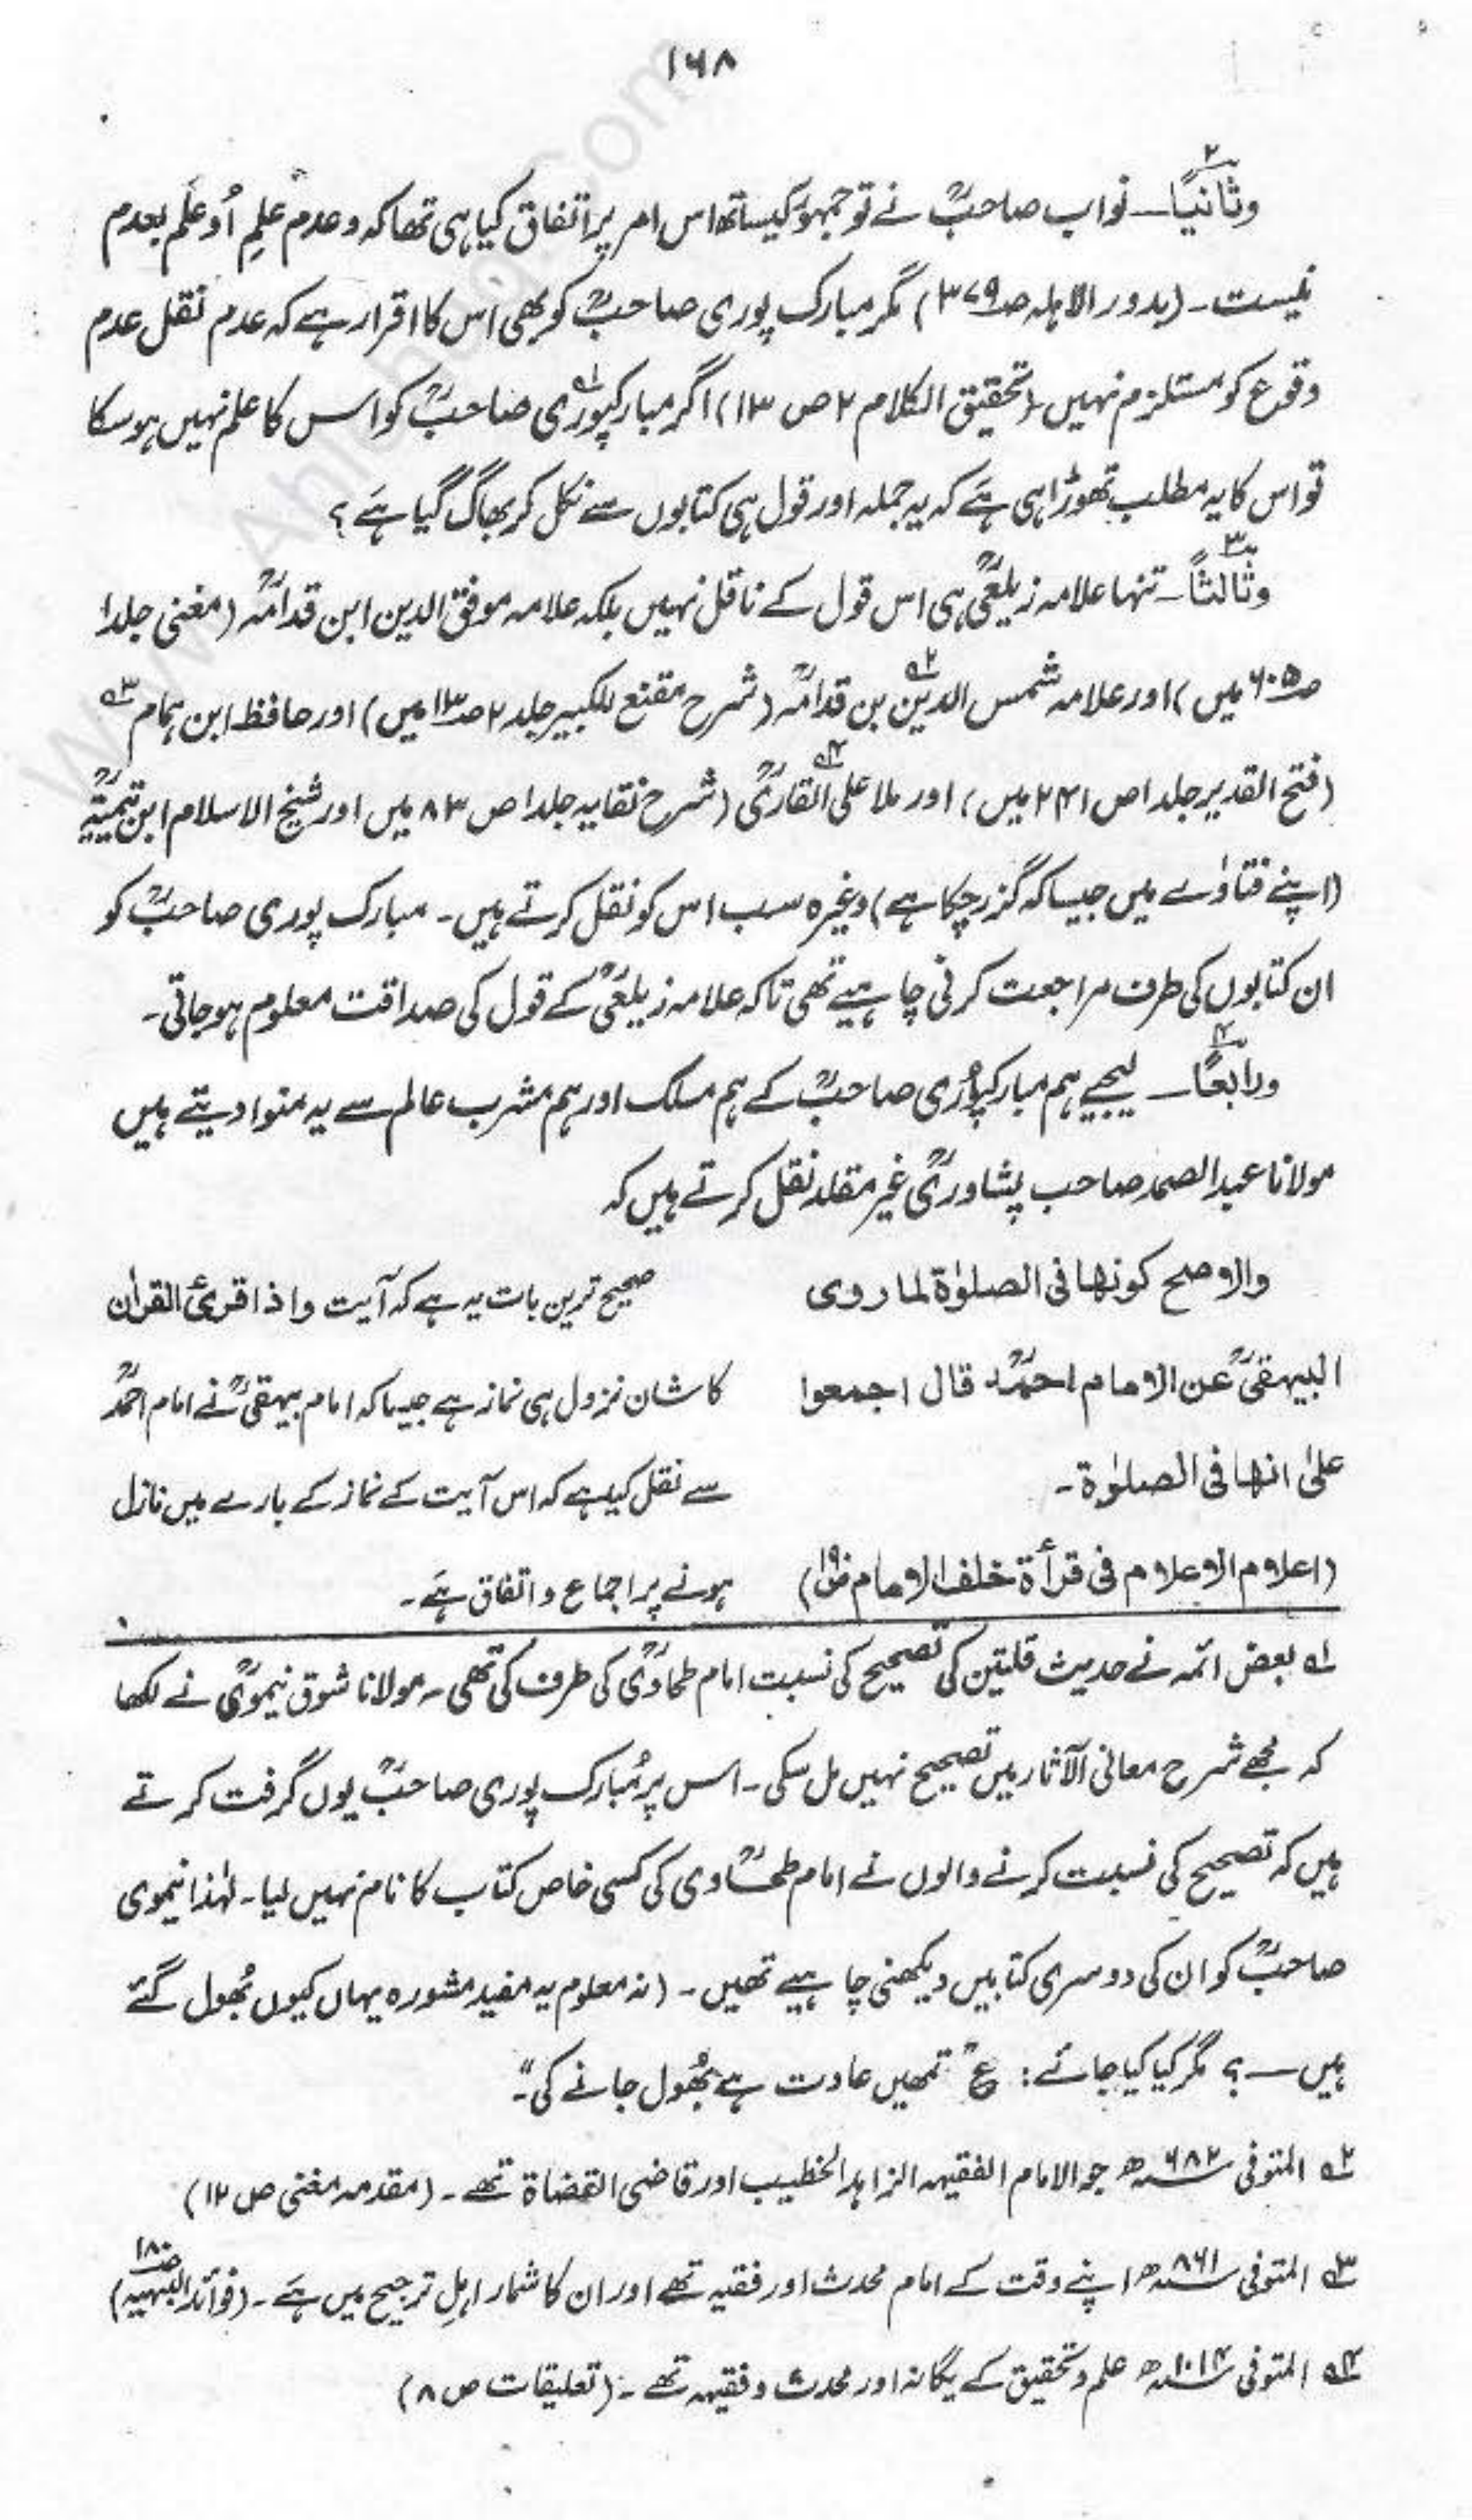 ۱۶۸
وثانیًا۔ نواب صاحبؒ نے تو جمہورؒ کیساتھ اس امر پر اتفاق کیا ہی تھا کہ و عدم علمِ اُو علَم بعدم
نیست۔ (بدور الاہلہ صـ۳۷۹) مگر مبارک پوری صاحبؒ کو بھی اس کا اقرار ہے کہ عدم نقل عدم
وقوع کو مستلزم نہیں۔ (تحقیق الکلام ۲ ص ۱۳) اگر مبارکپوریؒ لہ صاحبؒ کو اس کا علم نہیں ہو سکا
تو اس کا یہ مطلب تھوڑا ہی ہَے کہ یہ جملہ اور قول ہی کتابوں سے نکل کر بھاگ گیا ہَے ؟
وثالثاً۔ تنہا علامہ زیلعیؒ ہی اس قول کے ناقل نہیں بلکہ علامہ موفق الدین ابن قدامہؒ (مغنی جلد۱
صـ۶۰۵ میں) اور علامہ شمس الدینؒ ۲ بن قدامہؒ (شرح مقنع للکبیر جلد۲ صـ۱۳ میں) اور حافظ ابن ہمام ۳
(فتح القدیر جلد۱ ص ۲۴۱ میں) اور ملا علی ۴ القاریؒ (شرح نقایہ جلد۱ ص ۸۳ میں اور شیخ الاسلام ابن تیمیہؒ
(اپنے فتاوٰے میں جیسا کہ گزر چکا ہے) وغیرہ سب اس کو نقل کرتے ہیں۔ مبارک پوری صاحبؒ کو
ان کتابوں کی طرف مراجعت کرنی چاہیے تھی تاکہ علامہ زیلعیؒ کے قول کی صداقت معلوم ہو جاتی۔
ورابعًا۔ لیجیے ہم مبارکپوری صاحبؒ کے ہم مسلک اور ہم مشرب عالم سے یہ منوا دیتے ہیں
مولانا عبدالصمد صاحب پشاوریؒ غیر مقلد نقل کرتے ہیں کہ
والاصح کونھا فی الصلوٰۃ لما روی
البیہقیؒ عن الامام احمدؒ قال اجمعوا
علیٰ انھا فی الصلوٰۃ۔
(اعلام الاعلام فی قرأۃ خلف الامام صـ۱۹۰)
صحیح ترین بات یہ ہے کہ آیت واذا قرئ القراٰن
کا شان نزول ہی نماز ہے جیسا کہ امام بیہقیؒ نے امام احمدؒ
سے نقل کیا ہے کہ اس آیت کے نماز کے بارے میں نازل
ہونے پر اجماع و اتفاق ہَے۔
لہ بعض ائمہ نے حدیث قلتین کی تصحیح کی نسبت امام طحاویؒ کی طرف کی تھی۔ مولانا شوق نیمویؒ نے لکھا
کہ مجھے شرح معانی الآثار میں تصحیح نہیں مل سکی۔ اس پر مُبارک پوری صاحبؒ یوں گرفت کرتے
ہیں کہ تصحیح کی نسبت کرنے والوں نے امام طحاوی کی کسی خاص کتاب کا نام نہیں لیا۔ لہٰذا نیموی
صاحبؒ کو ان کی دوسری کتابیں دیکھنی چاہیے تھیں۔ (نہ معلوم یہ مفید مشورہ یہاں کیوں بُھول گئے
ہیں ۔ ؟ مگر کیا کیا جائے: ع "تمھیں عادت ہے بُھول جانے کی"۔
۲ المتوفی ۶۸۲ھ جو الامام الفقیہہ الزاہد الخطیب اور قاضی القضاۃ تھے۔ (مقدمہ مغنی ص ۱۲)
۳ المتوفی ۸۶۱ھ اپنے وقت کے امام محدث اور فقیہ تھے اور ان کا شمار اہلِ ترجیح میں ہَے۔ (فوائد البہیہ صـ۱۸۰)
۴ المتوفی ۱۰۱۴ھ علم و تحقیق کے یگانہ اور محدث و فقیہہ تھے۔ (تعلیقات ص ۸)